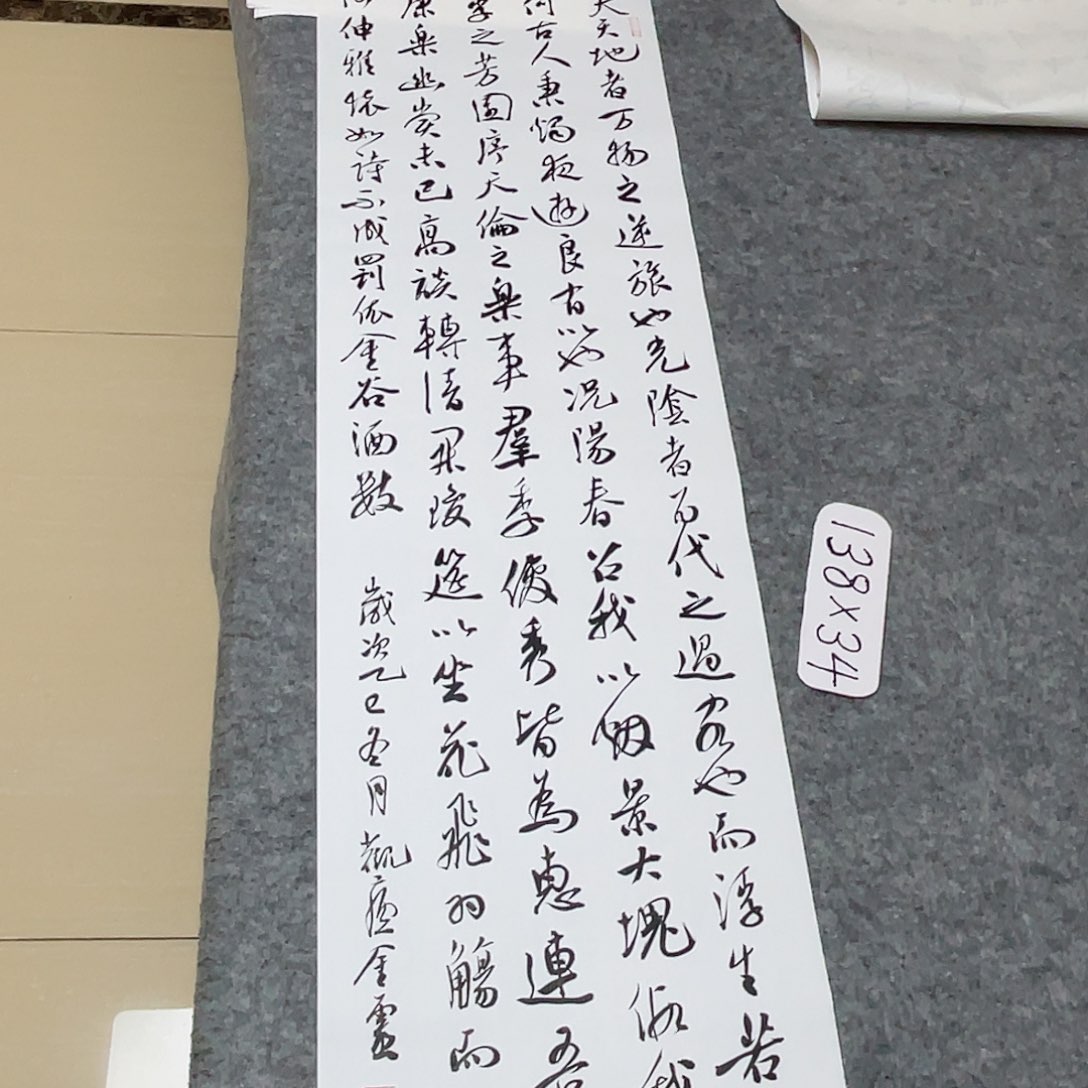 夫天地者万物之逆旅也光陰者百代之過客也而浮生若
何古人秉燭夜遊良有以也况陽春召我以烟景大塊假我
之芳園序天倫之樂事羣季俊秀皆為惠連吾
康樂幽賞未已高談轉清開瓊筵以坐花飛羽觴而
伸雅懷如詩不成罰依金谷酒数
歲次乙巳冬月
138×34